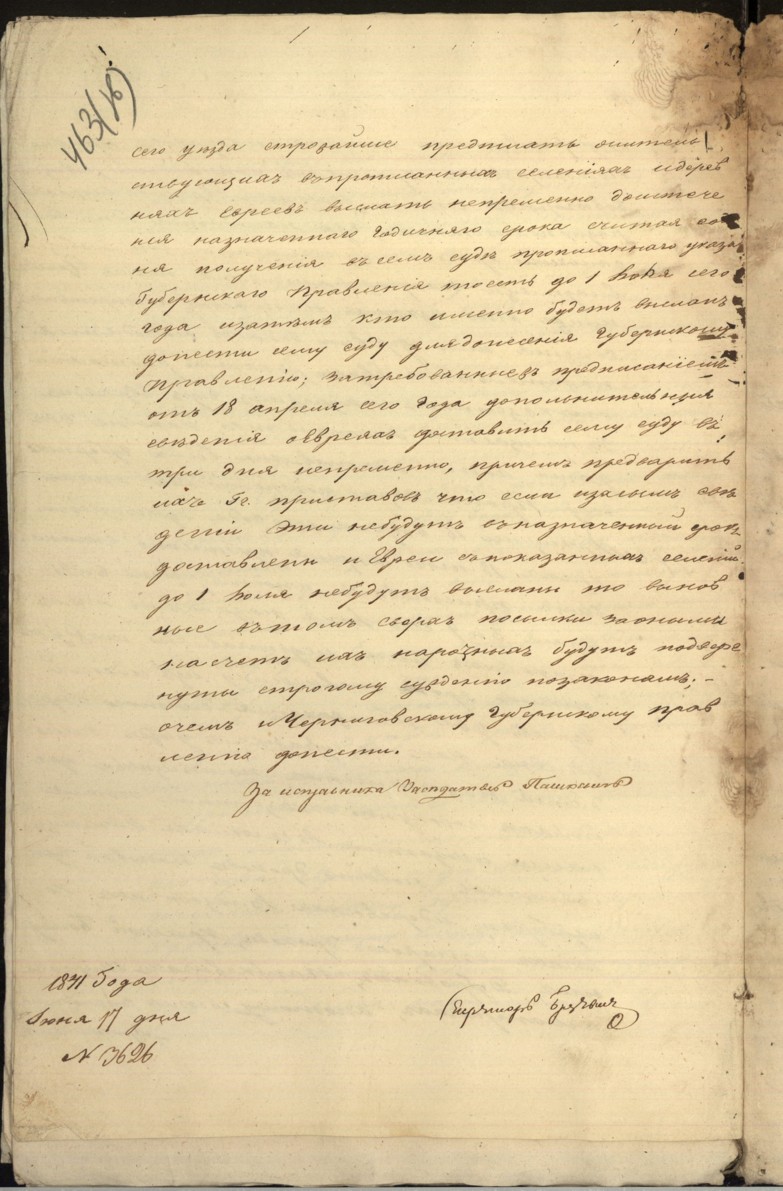 463(об)
сего уезда строжайше предписать о жител
ствующихъ въ прописанныхъ селенїяхъ и дерев
няхъ Евреевъ выслать непременно до истече
нїя назначеннаго годичняго срока считая со
ня полученїя въ семъ суде прописаннаго указа
Губернскаго Правленїя тоесть до 1 Іюля сего
года изатемъ кто именно будетъ высланъ
донести сему суду для донесенїя Губернскому
Правленїю; затребованные предписанїемъ
отъ 18 апреля сего года дополнительныя
сведенїя о Евреяхъ доставить сему суду въ
три дня непременно, причемъ предварить
ихъ Гг. приставовъ что если изалымъ све
денїи эти небудутъ въ назначенный срокъ
доставлены и Евреи съ показанныхъ селенїй
до 1 Іюля небудутъ высланы то винов
ные въ томъ сверхъ посылки заоными
на счетъ ихъ нарочныхъ будутъ подверг
нуты строгому сужденїю позаконамъ; –
очемъ и Черниговскому Губернскому прав
ленїю донести.
За исправника Заседатель
1841 года
Іюня 17 дня
№ 3626
Секретарь